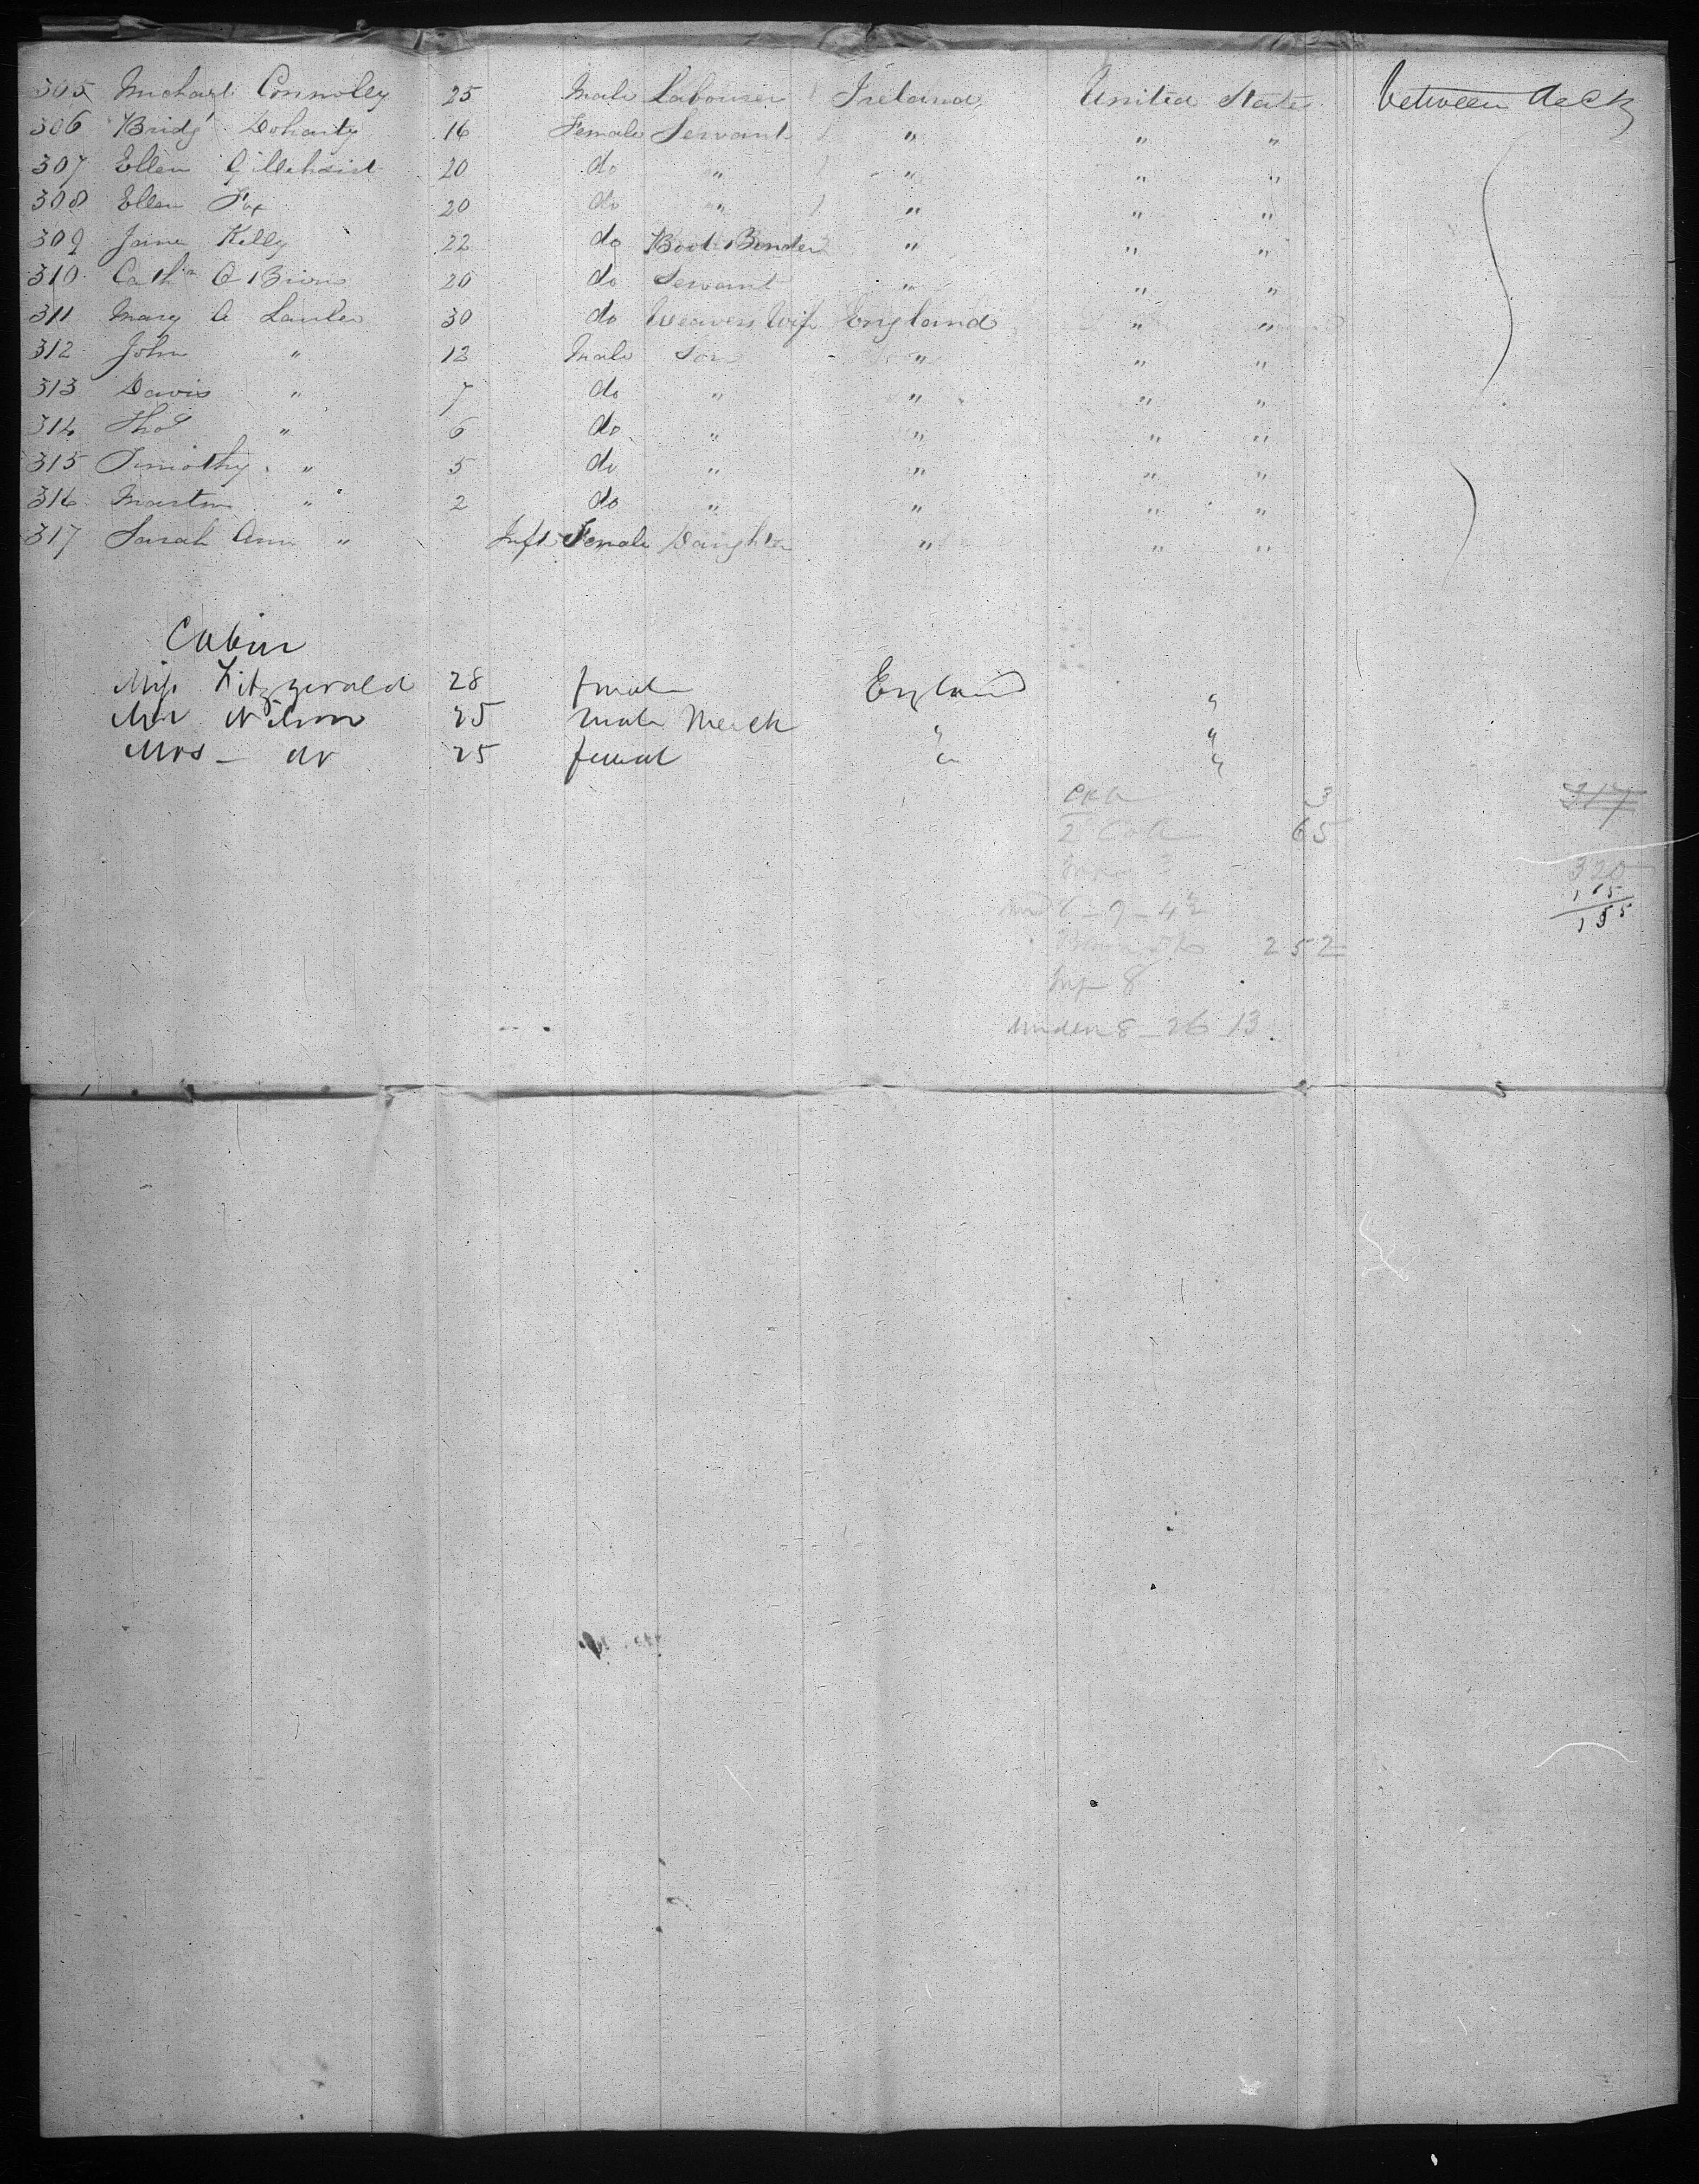 305 Michael Connolly 25 Male Labourer Ireland United States between deck
306 Bridgt Doharty 16 Female Servant " " "
307 Ellen 20 do " " " "
308 Ellen Fox 20 do " " " "
309 Jane Kelly 22 do Boot Binder " " "
310 Cathn O Brien 20 do Servant " " "
311 Mary A Lawler 30 do Weavers Wife England " "
312 John " 12 Male Son " " "
313 Davis " 7 do " " " "
314 Thos " 6 do " " " "
315 Timothy " 5 do " " " "
316 Martin " 2 do " " " "
317 Sarah Ann " Inft Female Daughter " " "
Cabin
Miss Fitzgerald 28 female England "
Mr Nelson 25 male Merch " "
Mrs - do 25 female " "
3 317
2 Cab 65
320
165
155
252
Inf 8
under 8 - 26 13